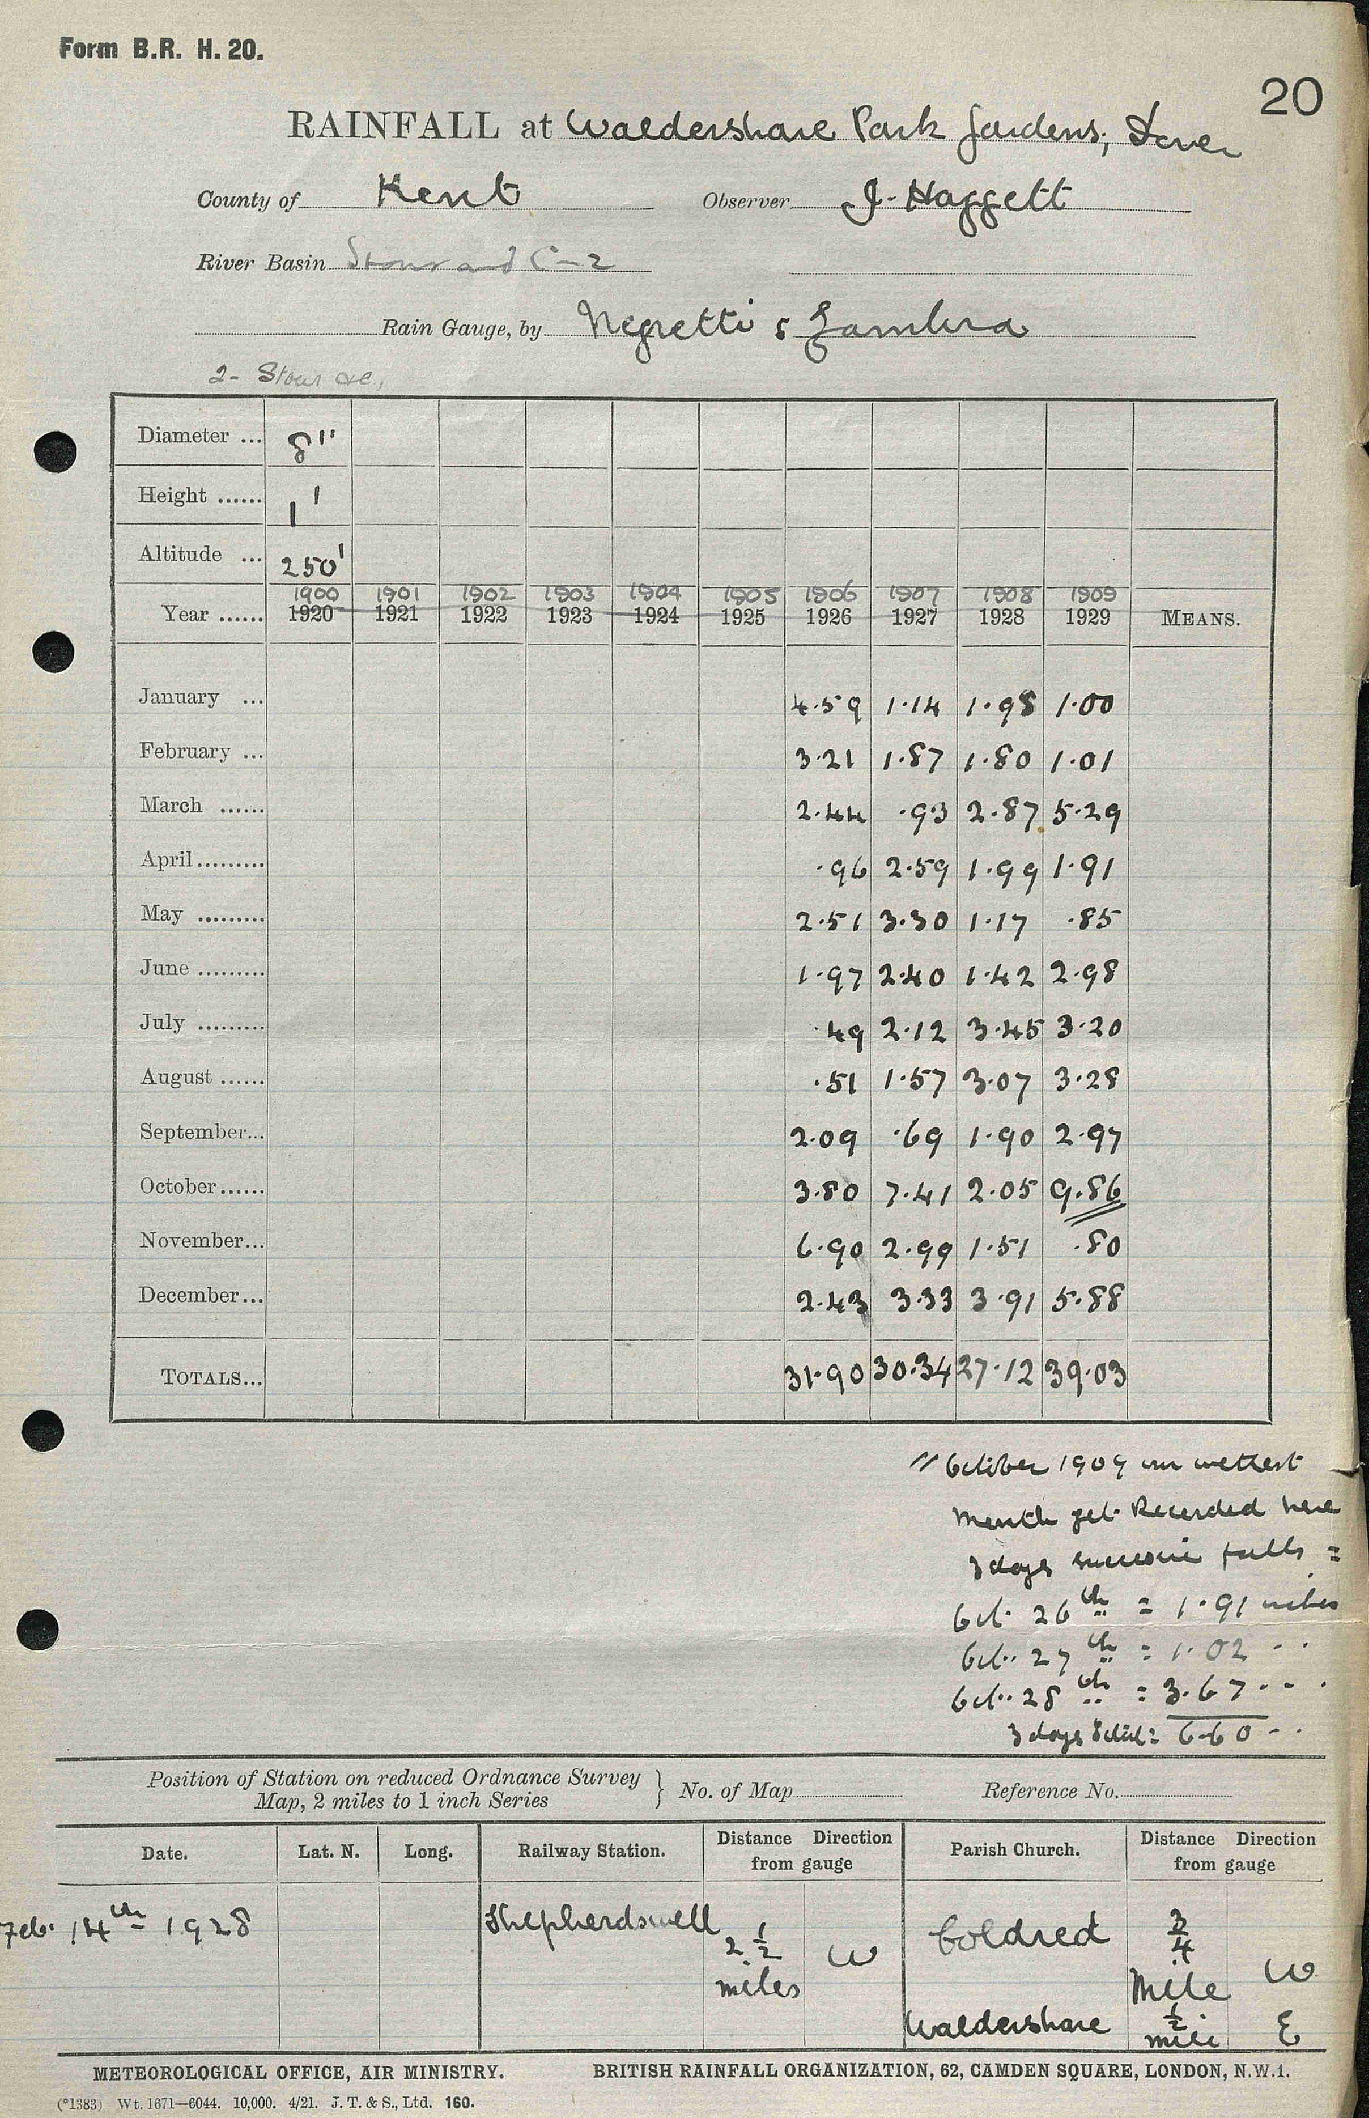 Form B.R. H. 20.
20
RAINFALL at Waldershare Park Gardens, Dover
County of Kent Observer J. Haggett
River Basin Stour and C-2
Rain Gauge, by Negretti & Zambra
2- Stour &c.,
Diameter ... 8"
Height ...... 1'
Altitude ... 250'
1900 1901 1902 1903 1904 1905 1906 1907 1908 1909
Year ...... 1920 1921 1922 1923 1924 1925 1926 1927 1928 1929 MEANS.
January ... 4.59 1.14 1.98 1.00
February ... 3.21 1.87 1.80 1.01
March ...... 2.44 .93 2.87 5.29
April ......... .96 2.59 1.99 1.91
May ......... 2.51 3.30 1.17 .85
June ......... 1.97 2.40 1.42 2.98
July ......... .49 2.12 3.45 3.20
August ...... .51 1.57 3.07 3.28
September... 2.09 .69 1.90 2.97
October...... 3.80 7.41 2.05 9.86
November... 6.90 2.99 1.51 .80
December... 2.43 3.33 3.91 5.88
TOTALS... 31.90 30.34 27.12 39.03
// October 1909 our wettest
Month yet Recorded here
3 days successive falls =
Oct. 26th = 1.91 inches
Oct. 27th = 1.02 . .
Oct. 28th = 3.67 . . .
3 days total = 6.60 . .
Position of Station on reduced Ordnance Survey
Map, 2 miles to 1 inch Series } No. of Map Reference No.
Date. Lat. N. Long. Railway Station. Distance Direction from gauge Parish Church. Distance Direction from gauge
Feb. 14th 1928 Shepherdswell 2 1/2 miles W Coldred 3/4 Mile W
Waldershare 1/2 mile E
METEOROLOGICAL OFFICE, AIR MINISTRY. BRITISH RAINFALL ORGANIZATION, 62, CAMDEN SQUARE, LONDON, N.W.1.
(*1383) Wt. 1671—6044. 10,000. 4/21. J. T. & S., Ltd. 160.